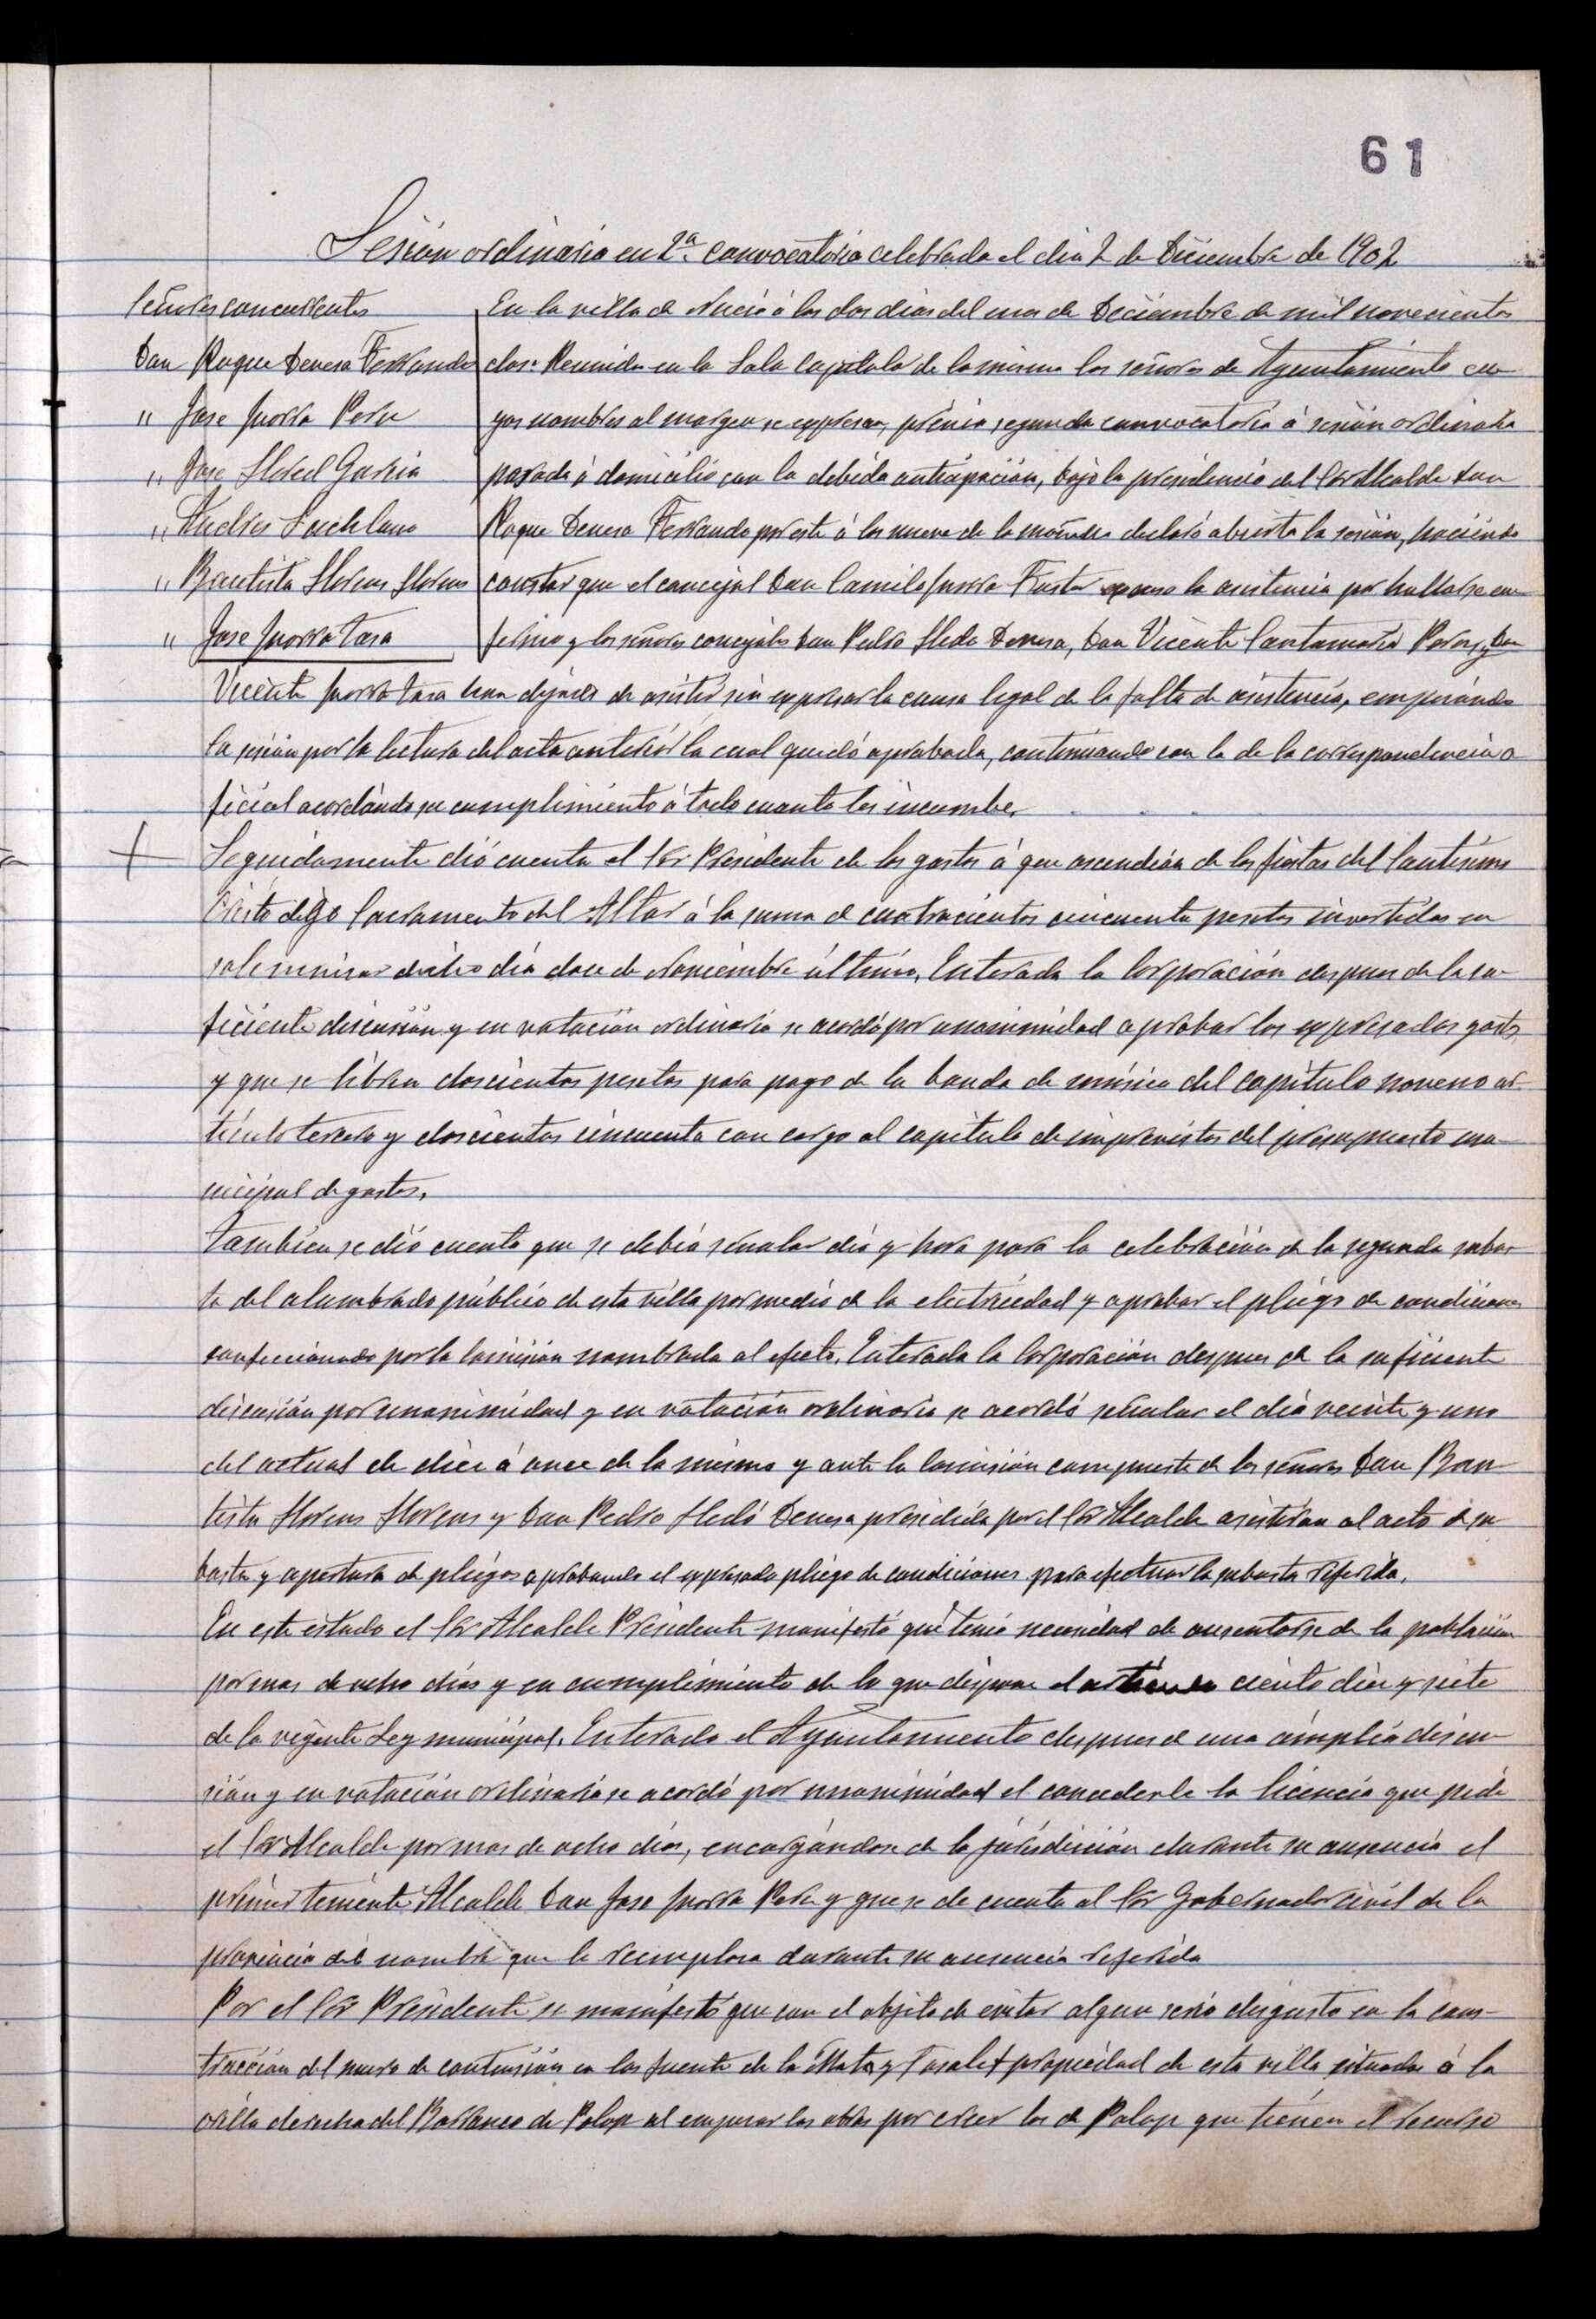 61
Sesión ordinaria en 2ª convocatoria celebrada el dia 2 de Diciembre de 1902
Señores concurrentes
Don Roque Devesa Ferrando
" Jose Lloret Garcia
" Bautista Llorens Llorens
En la villa de Nucia á los dos dias del mes de Deciembre de mil novecientos
dos: Reunidos en la Sala Capitular de la misma los señores de Ayuntamiento cu-
yos nombres al margen se expresan, prévia segunda convocatoria á sesión ordinaria
pasada á domicilio con la debida anticipación, bajo la presidencia del Sor Alcalde Don
Roque Devesa Ferrando por este á las nueve de la mañana declaró abierta la sesión, haciendo
constar que el concejal Don Camilo la asistencia por hallarse en-
fermo y los señores concejales Don Pedro Lledó Devesa, Don Vicente Santamaria y Don
Vicente han dejado de asistir sin expresar la causa legal de la falta de asistencia, empezándo
la sesión por la lectura del acta anterior la cual quedó aprobada, continuando con la de la correspondencia o-
ficial acordándo su cumplimiento á todo cuanto les incumbe.
Seguidamente dió cuenta el Sor Presidente de los gastos á que ascendián de las fiestas del Santisimo
Cristo digo Sacramento del Altar á la suma de cuatrocientas cincuenta pesetas invertidas en
solemnizar dicho dia doce de Noviembre último. Enterada la Corporación despues de la su-
ficiente discusión y en votación ordinaria se acordó por unanimidad aprobar los expresados gastos
y que se libren doscientas pesetas para pago de la banda de música del capitulo noveno ar-
tículo tercero y doscientas cincuenta con cargo al capitulo de imprevistos del presupuesto mu-
nicipal de gastos.
Tambien se dió cuenta que se debia señalar dia y hora para la celebración de la segunda subas-
ta del alumbrado público de esta villa por medio de la electricidad y aprobar el pliego de condiciones
confeccionado por la Comisión nombrada al efecto. Enterada la Corporación despues de la suficiente
discusión por unanimidad y en votación ordinaria se acordó señalar el dia veinte y uno
del actual de diez á once de la misma y ante la Comisión compuesta de los señores Don Bau-
tista Llorens Llorens y Don Pedro Lledó Devesa presidida por el Sor Alcalde asistiran al acto de su-
basta y apertura de pliegos aprobando el expresado pliego de condiciones para efectuar la subasta referida.
En este estado el Sor Alcalde Presidente manifestó que tenia necesidad de ausentarse de la población
por mas de ocho dias y en cumplimiento de lo que dispone el artículo ciento diez y siete
de la vigente Ley municipal. Enterado el Ayuntamiento despues de una ámplia discu-
sión y en votación ordinaria se acordó por unanimidad el concederle la licencia que pide
el Sor Alcalde por mas de ocho dias, encargándose de la jurisdicción durante su ausencia el
primer teniente Alcalde Don Jose y que se de cuenta al Sor Gobernador civil de la
provincia del nombre que le reemplaza durante su ausencia referida
Por el Sor Presidente se manifestó que con el objeto de evitar algun serio disgusto en la cons-
trucción del muro de contensión en las fuente de la Mata y propiedad de esta villa situada á la
orilla derecha del Barranco de Polop al empezar las obras por creer los de Polop que tienen el